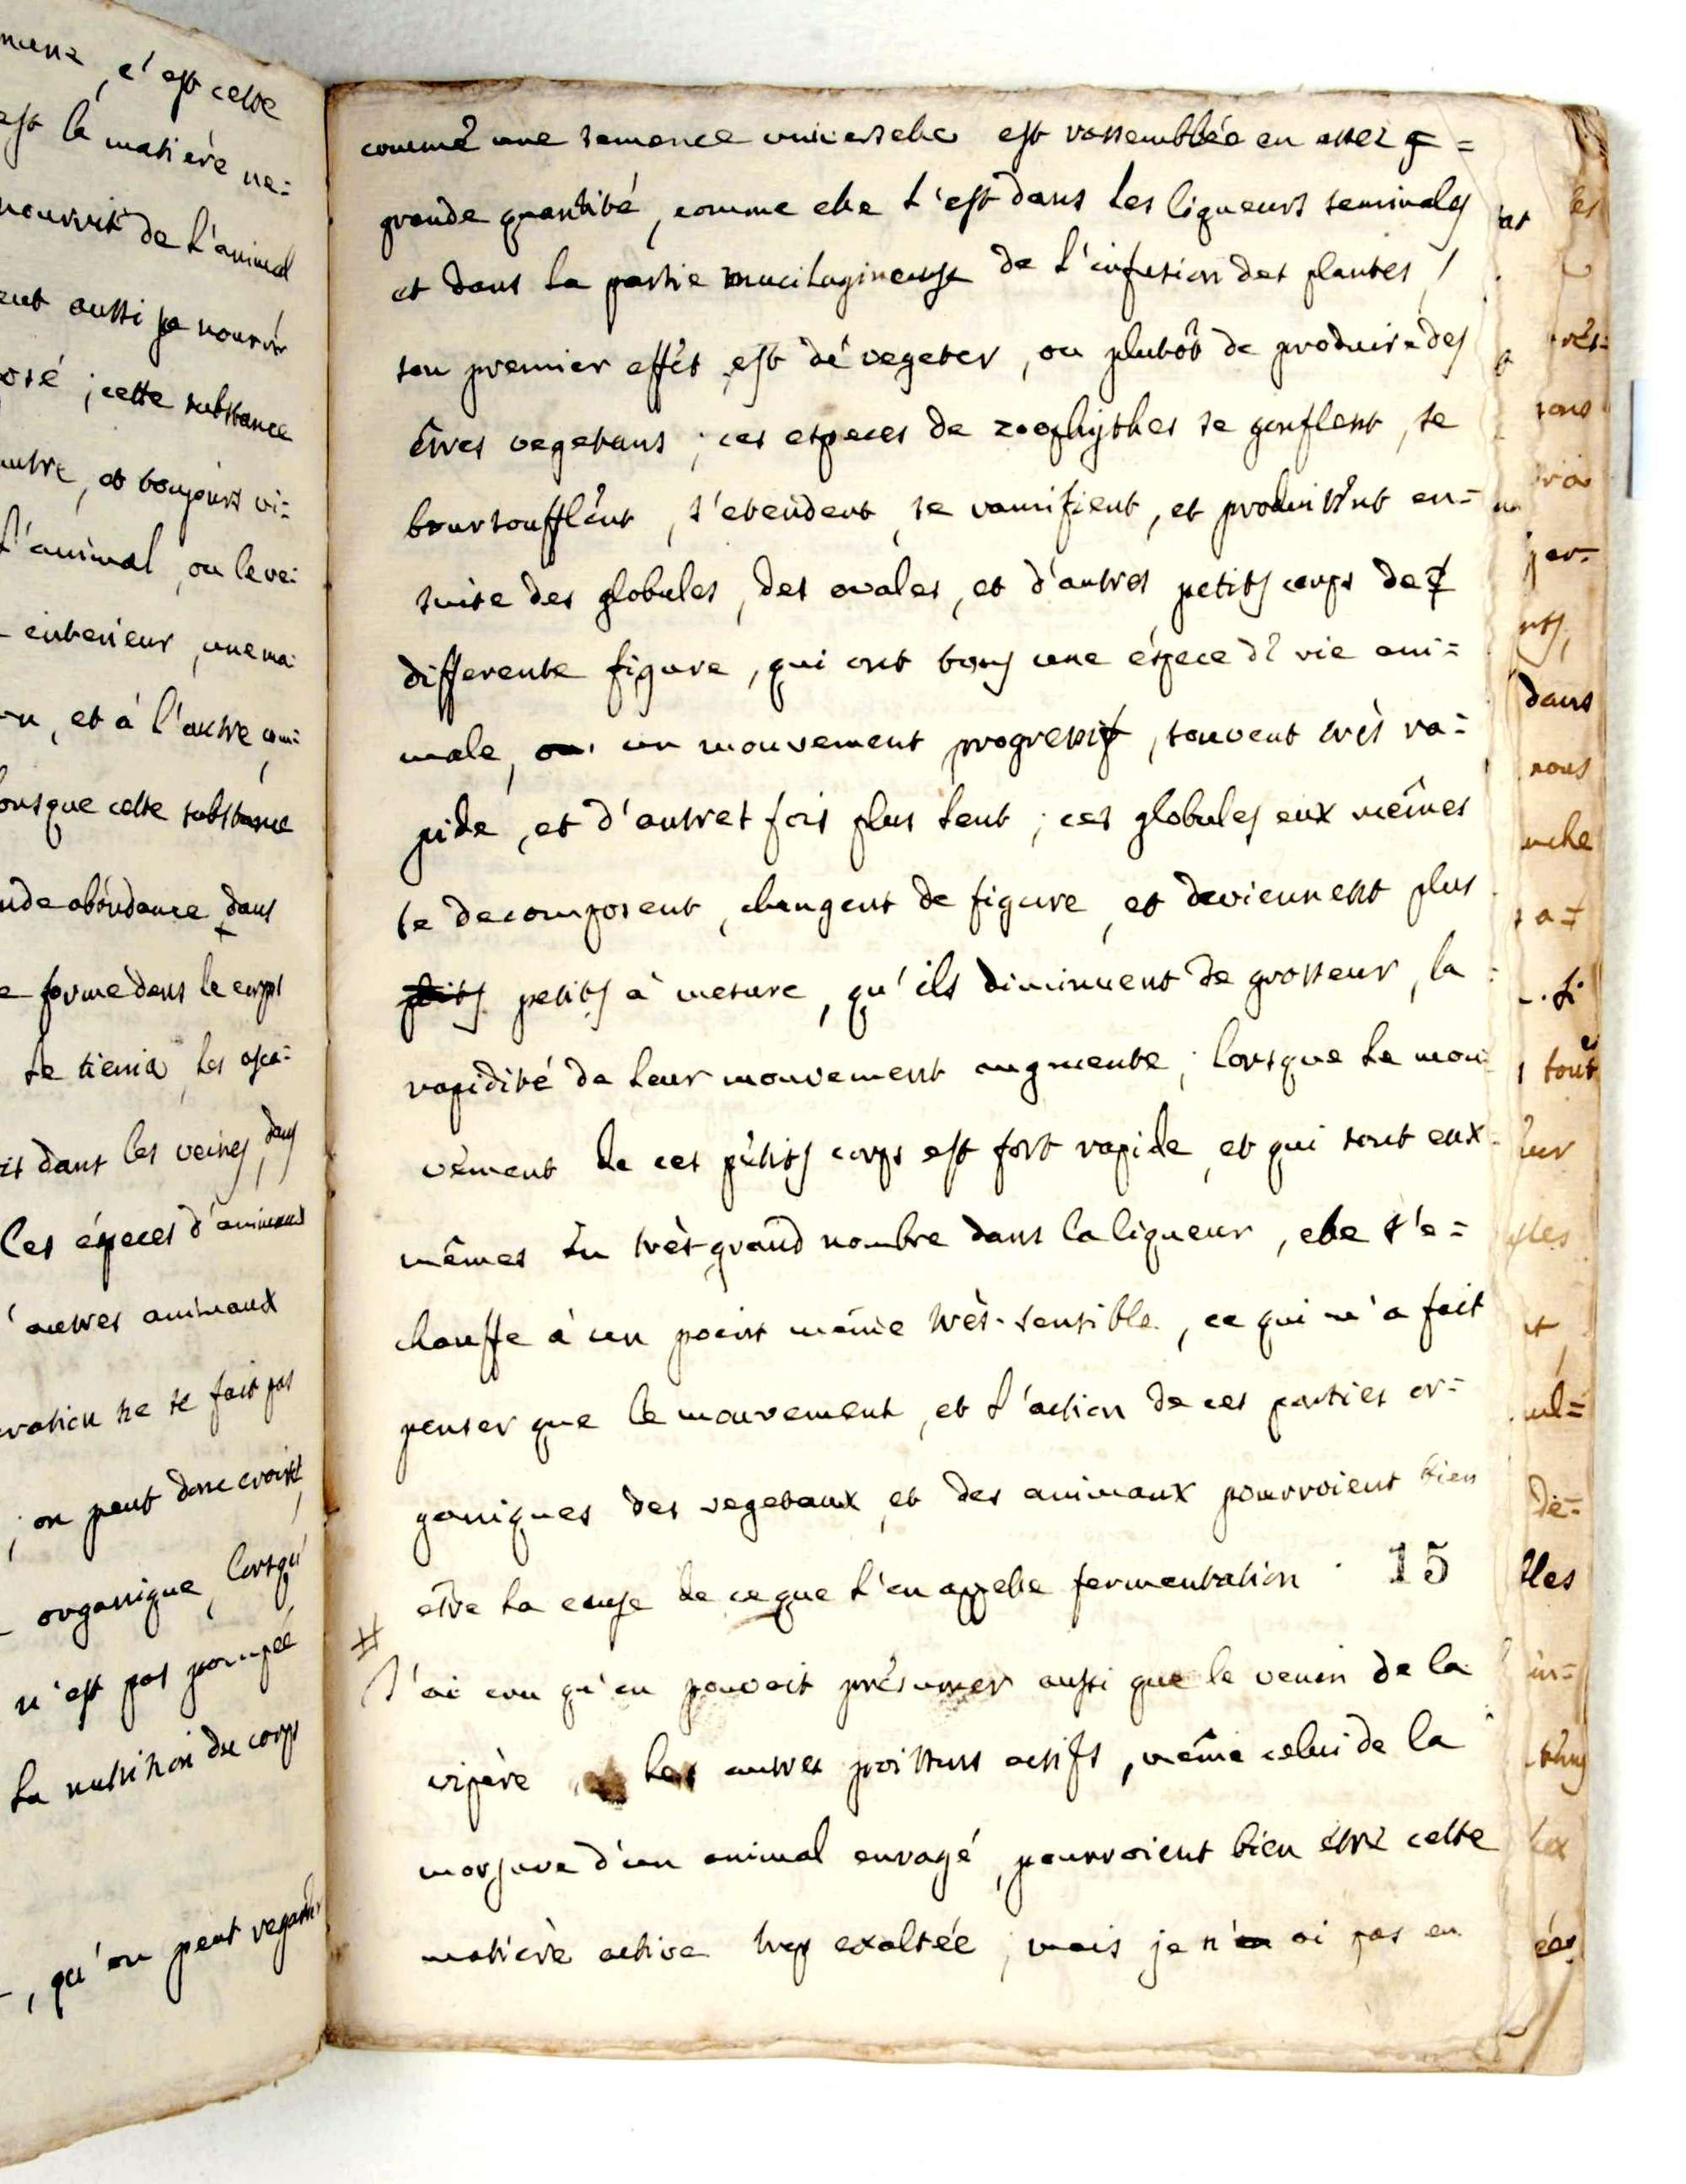 mune, c'est cette
est la matière ne=
nourrit de l'animal
eut aussi se nourir
osé ; cette substance
autre, et toujours vi=
l'animal, ou le ve=
interieur, une ma=
n, et à l'autre com=
orsque cette substance
nde abondance dans
e forme dans le corps
le tienia, les asca=
it dans les veines, dans
Ces éspeces d'animaux
d'autres animaux
eration ne se fait pas
; on peut donc croire
organique, lorsqu'
n'est pas pompée
la nutrition du corps
, qu'on peut regarder
comme une semence universelle est rassemblée en assez g=
grande quantité, comme elle l'est dans les liqueurs seminales
et dans la partie mucilagineuse de l'infusion des plantes,
son premier effet est de vegeter, ou plutôt de produire des
êtres vegetans ; ces especes de zoophythes se gonflent, se
boursoufflent, s'etendent, se ramifient, et produisent en=
suite des globules, des ovales, et d'autres petits corps de
differente figure, qui ont tous une éspece de vie ani=
male, ou un mouvement progressif, souvent très ra=
pide, et d'autres fois plus lent ; ces globules eux mêmes
se decomposent, changent de figure, et deviennent plus
petits petits à mesure, qu'ils diminuent de grosseur, la
rapidité de leur mouvement augmente ; lorsque le mou=
vement de ces petits corps est fort rapide, et qui sont eux=
mêmes en très-grand nombre dans la liqueur, elle s'e=
chauffe à un point même très-sensible, ce qui m'a fait
penser que le mouvement, et l'action de ces parties or=
ganiques des vegetaux, et des animaux pourroient bien
etre la cause de ce que l'on appelle fermentation . 15
# J'ai cru qu'on pouvoit présumer aussi que le venin de la
vipère, les autres poissons actifs, même celui de la
morsure d'un animal enragé, pourroient bien être cette
matière active trop exaltée ; mais je n'en ai pas eu
les
très=
sons
par=
dans
nous
nche
ra=
si
tout
leur
nt
ul=
dé=
lles
in=